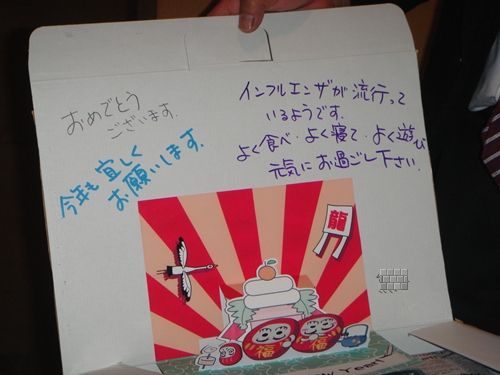 おめでとう
ございます.
今年も宜しく
お願いします.
インフルエンザが流行って
いるようです.
よく食べ・よく寝て・よく遊び
元気にお過ごし下さい.
龍
福
福
Year